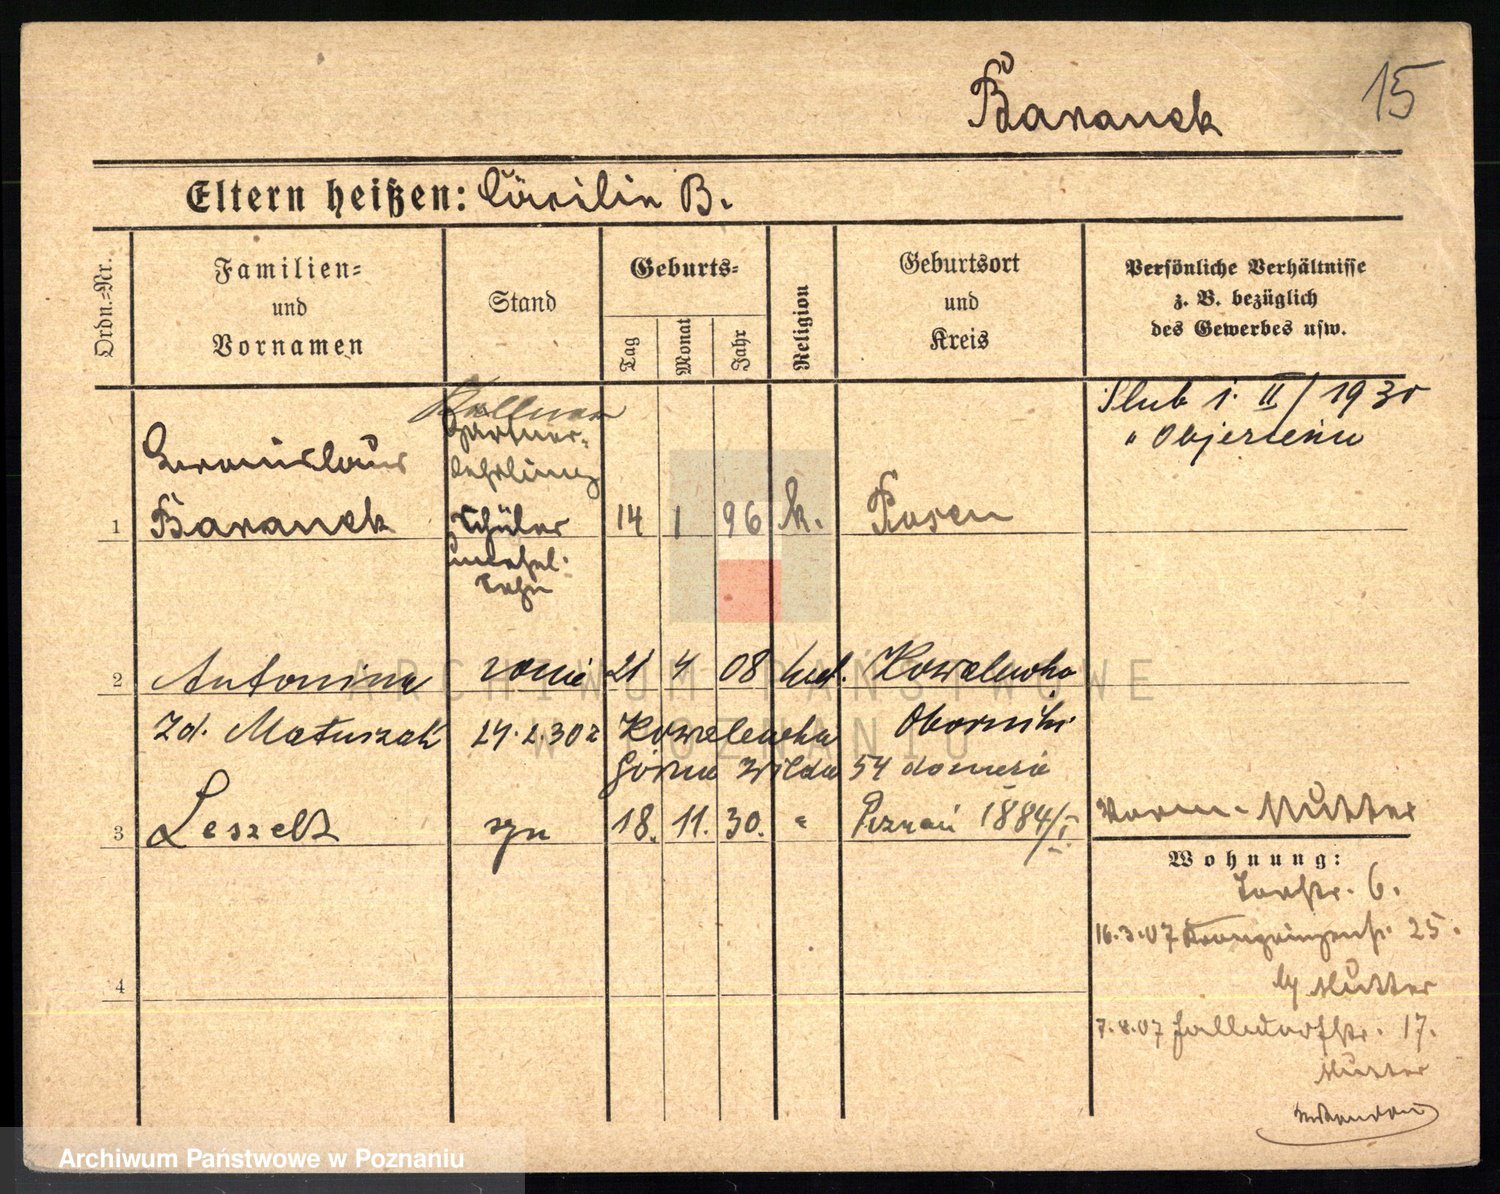 Baranek
15
Eltern heißen: Cäcilie B.
Ordn.-Nr.
Familien-
und
Vornamen
Stand
Geburts-
Tag
Monat
Jahr
Religion
Geburtsort
und
Kreis
Persönliche Verhältnisse
z. B. bezüglich
des Gewerbes usw.
Ślub 1. II/1930
w Objezierzu
Kellner
Gärtner-
lehrling
1 Bronislaus
Baranek
Schüler
unehel.
Sohn
14 1 96 k. Posen
2 Antonina
żona 21 4 08 kat. Kowalewko
Zd. Matuszak 24.2.30 z Kowalewka Oborniki
Górna Wilda 54
3 Leszek syn 18. 11. 30. " Poznań 1884/I
Vorm. Mutter
Wohnung:
Torstr. 6.
16.3.07 Kronprinzenstr. 25.
by Mutter
7.8.07 17.
Mutter
4
ARCHIWUM PAŃSTWOWE
W POZNANIU
Archiwum Państwowe w Poznaniu